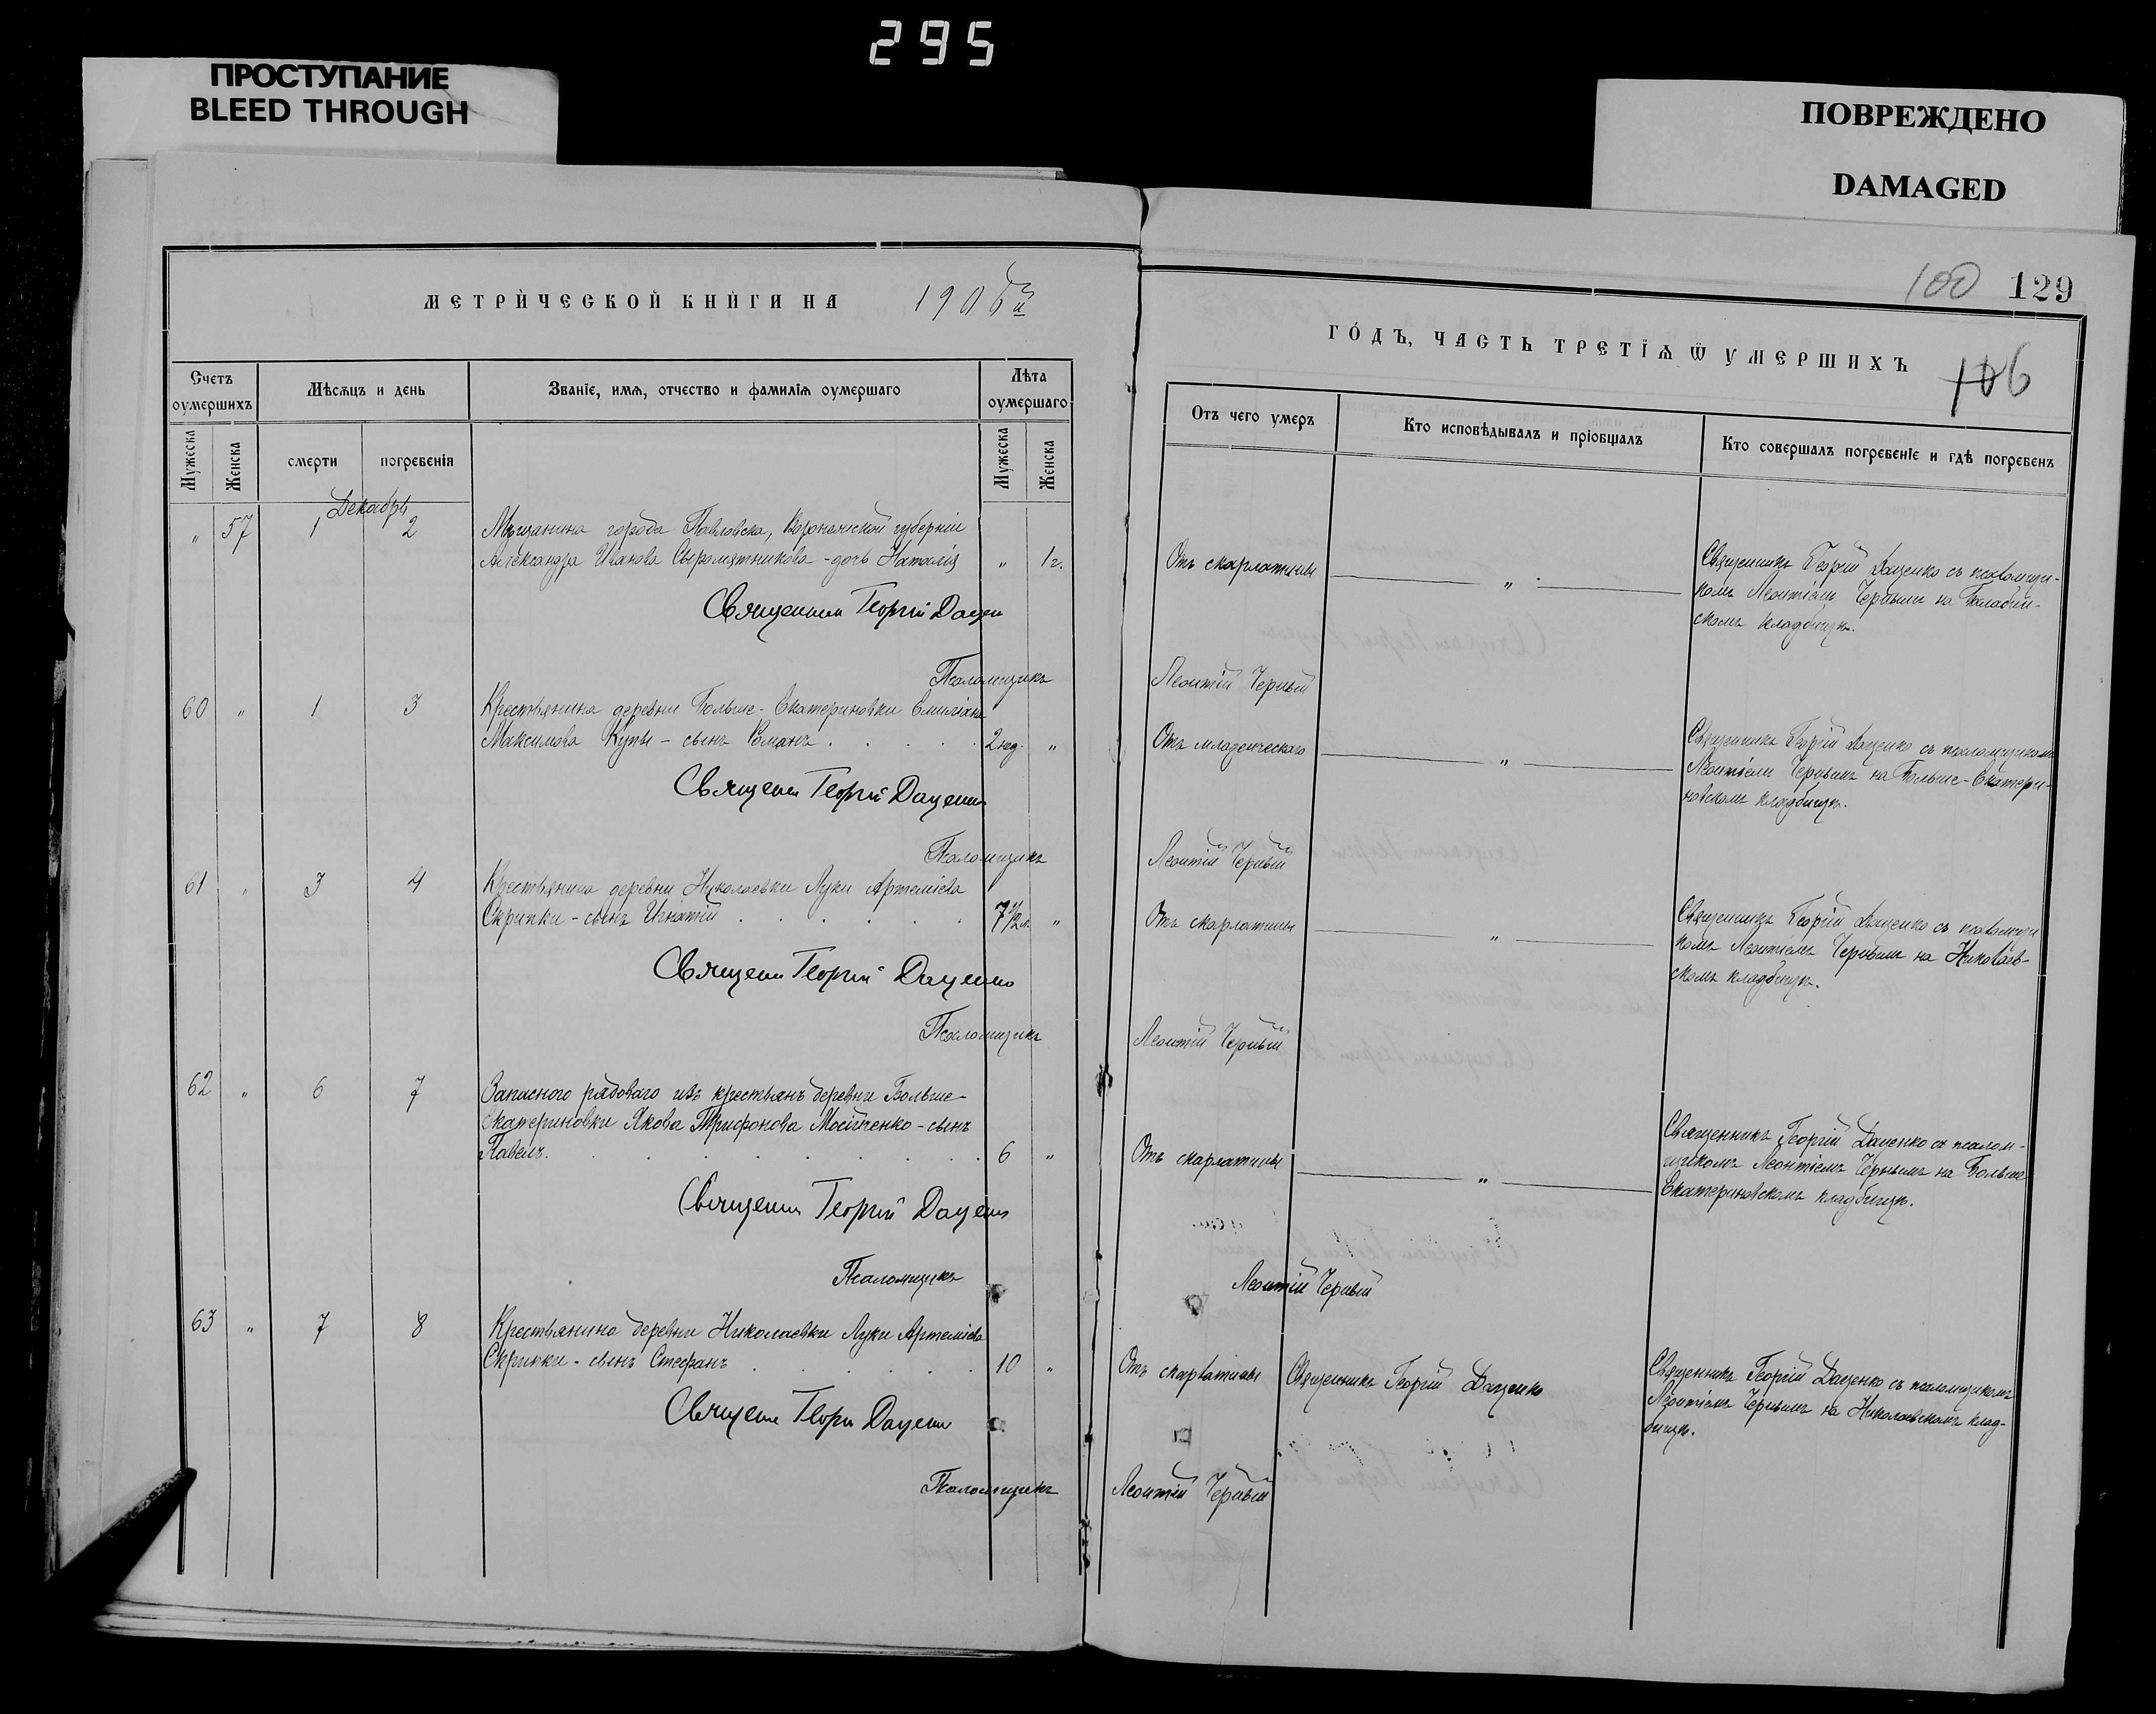 295
ПРОСТУПАНИЕ
BLEED THROUGH
ПОВРЕЖДЕНО
DAMAGED
МЕТРИЧЕСКОЙ КНИГИ НА 1906й
100 129
ГОДЪ, ЧАСТЬ ТРЕТІѦ Ѿ УМЕРШИХЪ
106
Счетъ оумершихъ
Мѣсѧцъ и день
Званіе, имѧ, отчество и фамиліѧ оумершаго
Лѣта оумершаго
Отъ чего умеръ
Кто исповѣдывалъ и пріобщалъ
Кто совершалъ погребеніе и гдѣ погребенъ
Мужеска
Женска
смерти
погребенія
Мужеска
Женска
Декабрь
" 57 1 2 Мѣщанина города Павловска, Воронежской губерніи
Александра Иванова Сыромятникова - дочь Наталія " 1 г.
Отъ скарлатины "
Священникъ Георгій Даценко съ псаломщи-
комъ Леонтіемъ Чернымъ на
скомъ кладбищѣ.
Священник Георгій Дацен
Псаломщикъ Леонтій Черный
60 " 1 3 Крестьянина деревни Больше-Екатериновки Емиліана
Максимова Купы - сынъ Романъ . . . . . 2 нед. "
Отъ младенческаго "
Священникъ Георгій Даценко съ псаломщикомъ
Леонтіемъ Чернымъ на Больше-Екатери-
новскомъ кладбищѣ.
Священ Георгій Даценко
Псаломщикъ Леонтій Черный
61 " 3 4 Крестьянина деревни Николаевки Луки Артеміева
Скрипки - сынъ Игнатій . . . . . . 7 1/2 л. "
Отъ скарлатины "
Священникъ Георгій Даценко съ псаломщи
комъ Леонтіемъ Чернымъ на Николаев-
скомъ кладбищѣ.
Священ Георгій Даценко
Псаломщикъ Леонтій Черный
62 " 6 7 Запаснаго рядоваго изъ крестьянъ деревни Больше-
Екатериновки Якова Трифонова Мосійченко - сынъ
Павелъ. . . . . . . . . . 6 "
Отъ скарлатины "
Священникъ Георгій Даценко съ псалом-
щикомъ Леонтіемъ Чернымъ на Больше
Екатериновскомъ кладбищѣ.
Священ Георгій Даценко
Псаломщикъ Леонтій Черный
63 " 7 8 Крестьянина деревни Николаевки Луки Артеміева
Скрипки - сынъ Стефанъ . . . . . . 10 "
Отъ скарлатины Священникъ Георгій Даценко
Священникъ Георгій Даценко съ псаломщикомъ
Леонтіемъ Чернымъ на Николаевскомъ клад-
бищѣ.
Священ Георгій Даценко
Псаломщикъ Леонтій Черный